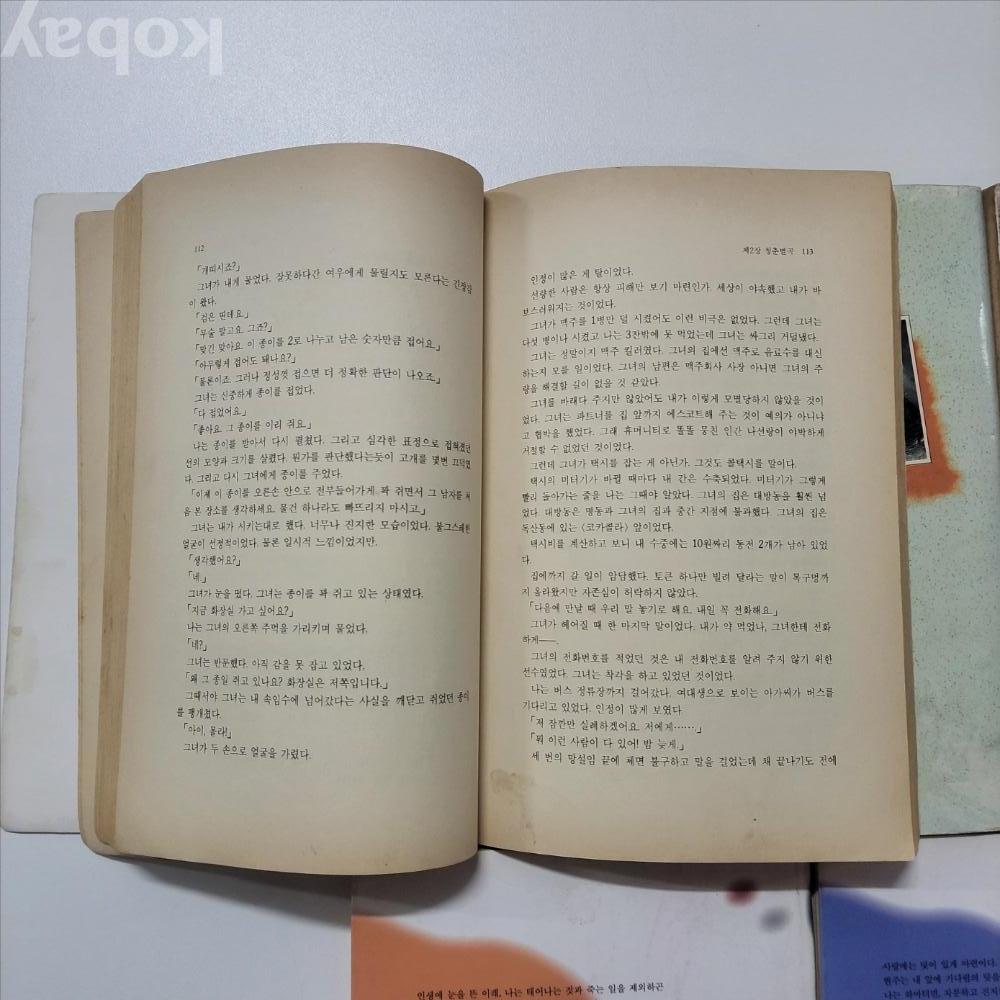 kobay
112
「개띠시죠?」
그녀가 내게 물었다. 잘못하다간 여우에게 물릴지도 모른다는 긴장감
이 왔다.
「검은 띤데요.」
「무술 말고요. 그죠?」
「맞긴 맞아요. 이 종이를 2로 나누고 남은 숫자만큼 접어요.」
「아무렇게 접어도 돼나요?」
「물론이죠. 그러나 정성껏 접으면 더 정확한 판단이 나오죠.」
그녀는 신중하게 종이를 접었다.
「다 접었어요.」
「좋아요. 그 종이를 이리 줘요.」
나는 종이를 받아서 다시 펼쳤다. 그리고 심각한 표정으로 접혀졌던
선의 모양과 크기를 살폈다. 뭔가를 판단했다는듯이 고개를 몇번 끄덕였
다. 그리고 다시 그녀에게 종이를 주었다.
「이제 이 종이를 오른손 안으로 전부들어가게 꽉 쥐면서 그 남자를 처
음 본 장소를 생각하세요. 물건 하나라도 빠뜨리지 마시고.」
그녀는 내가 시키는대로 했다. 너무나 진지한 모습이었다. 불그스레한
얼굴이 선정적이었다. 물론 일시적 느낌이었지만.
「생각했어요?」
「네.」
그녀가 눈을 떴다. 그녀는 종이를 꽉 쥐고 있는 상태였다.
「지금 화장실 가고 싶어요?」
나는 그녀의 오른쪽 주먹을 가리키며 물었다.
「네?」
그녀는 반문했다. 아직 감을 못 잡고 있었다.
「왜 그 종일 쥐고 있나요? 화장실은 저쪽입니다.」
그때서야. 그녀는 내 속임수에 넘어갔다는 사실을 깨닫고 쥐었던 종이
를 팽개쳤다.
「아이, 몰라!」
그녀가 두 손으로 얼굴을 가렸다.
제2장 청춘별곡 113
인정이 많은 게 탈이었다.
선량한 사람은 항상 피해만 보기 마련인가. 세상이 야속했고 내가 바
보스러워지는 것이었다.
그녀가 맥주를 1병만 덜 시켰어도 이런 비극은 없었다. 그런데 그녀는
다섯 병이나 시켰고 나는 3잔밖에 못 먹었는데 그녀는 싸그리 거덜냈다.
그녀는 정말이지 맥주 킬러였다. 그녀의 집에선 맥주로 음료수를 대신
하는지 모를 일이었다. 그녀의 남편은 맥주회사 사장 아니면 그녀의 주
량을 해결할 길이 없을 것 같았다.
그녀를 바래다 주지만 않았어도 내가 이렇게 모멸당하지 않았을 것이
었다. 그녀는 파트너를 집 앞까지 에스코트해 주는 것이 예의가 아니냐
고 협박을 했었다. 그래 휴머니티로 똘똘 뭉친 인간 나선랑이 야박하게
거절할 수 없었던 것이었다.
그런데 그녀가 택시를 잡는 게 아닌가. 그것도 콜택시를 말이다.
택시의 미터기가 바뀔 때마다 내 간은 수축되었다. 미터기가 그렇게
빨리 돌아가는 줄을 나는 그때야 알았다. 그녀의 집은 대방동을 훨씬 넘
었다. 대방동은 명동과 그녀의 집과 중간 지점에 불과했다. 그녀의 집은
독산동에 있는 〈코카콜라〉 앞이었다.
택시비를 계산하고 보니 내 수중에는 10원짜리 동전 2개가 남아 있었
다.
집에까지 갈 일이 암담했다. 토큰 하나만 빌려 달라는 말이 목구멍까
지 올라왔지만 자존심이 허락하지 않았다.
「다음에 만날 때 우리 말 놓기로 해요. 내일 꼭 전화해요.」
그녀가 헤어질 때 한 마지막 말이었다. 내가 약 먹었나, 그녀한테 전화
하게──.
그녀의 전화번호를 적었던 것은 내 전화번호를 알려 주지 않기 위한
선수였었다. 그녀는 착각을 하고 있었던 것이었다.
나는 버스 정류장까지 걸어갔다. 여대생으로 보이는 아가씨가 버스를
기다리고 있었다. 인정이 많게 보였다.
「저 잠깐만 실례하겠어요. 저에게……」
「뭐 이런 사람이 다 있어! 밤 늦게.」
세 번의 망설임 끝에 체면 불구하고 말을 걸었는데 채 끝나기도 전에
인생에 눈을 뜬 이래, 나는 태어나는 것과 죽는 일을 제외하곤
사랑에는 덫이 있게 마련이다.
현주는 내 앞에 기다림의 덫을